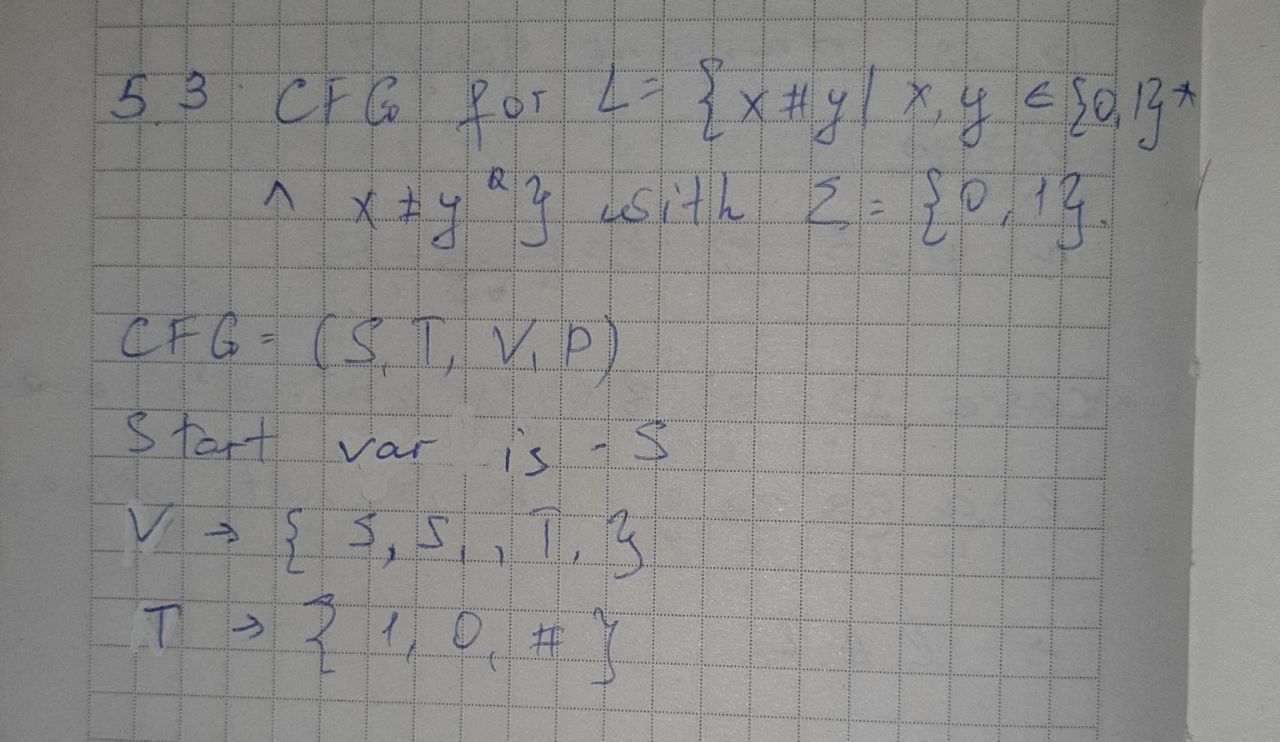 5.3 CFG for L = {x#y | x, y ∈ {0,1}*
∧ x ≠ y^R} with Σ = {0, 1}.
CFG = (S, T, V, P)
Start var is - S
V → { S, S₁, T, }
T → { 1, 0, # }